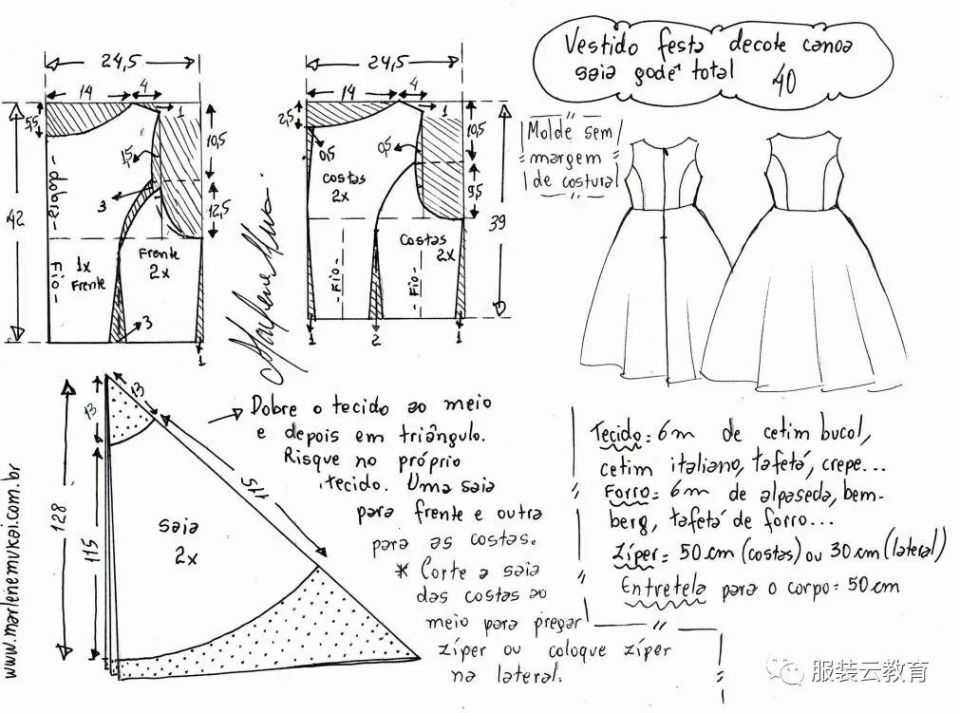 Vestido festa decote canoa
saia godê total 40
24,5
14
4
1
5,5
10,5
1,5
3
12,5
42
dobra
Fio
1x
Frente
Frente
2x
3
1
24,5
14
4
1
2,5
10,5
0,5
0,5
costas
2x
9,5
39
Costas
2x
Fio
Fio
1
2
1
Molde sem
margem
de costura
13
13
128
115
115
saia
2x
Dobre o tecido ao meio
e depois em triângulo.
Risque no próprio
tecido. Uma saia
para frente e outra
para as costas.
* Corte a saia
das costas ao
meio para pregar
zíper ou coloque zíper
na lateral.
Tecido = 6m de cetim bucol,
cetim italiano, tafetá, crepe...
Forro = 6m de alpaseda, bem-
berg, tafetá de forro...
Zíper = 50 cm (costas) ou 30 cm (lateral)
Entretela para o corpo = 50 cm
www.marlenemukai.com.br
服装云教育